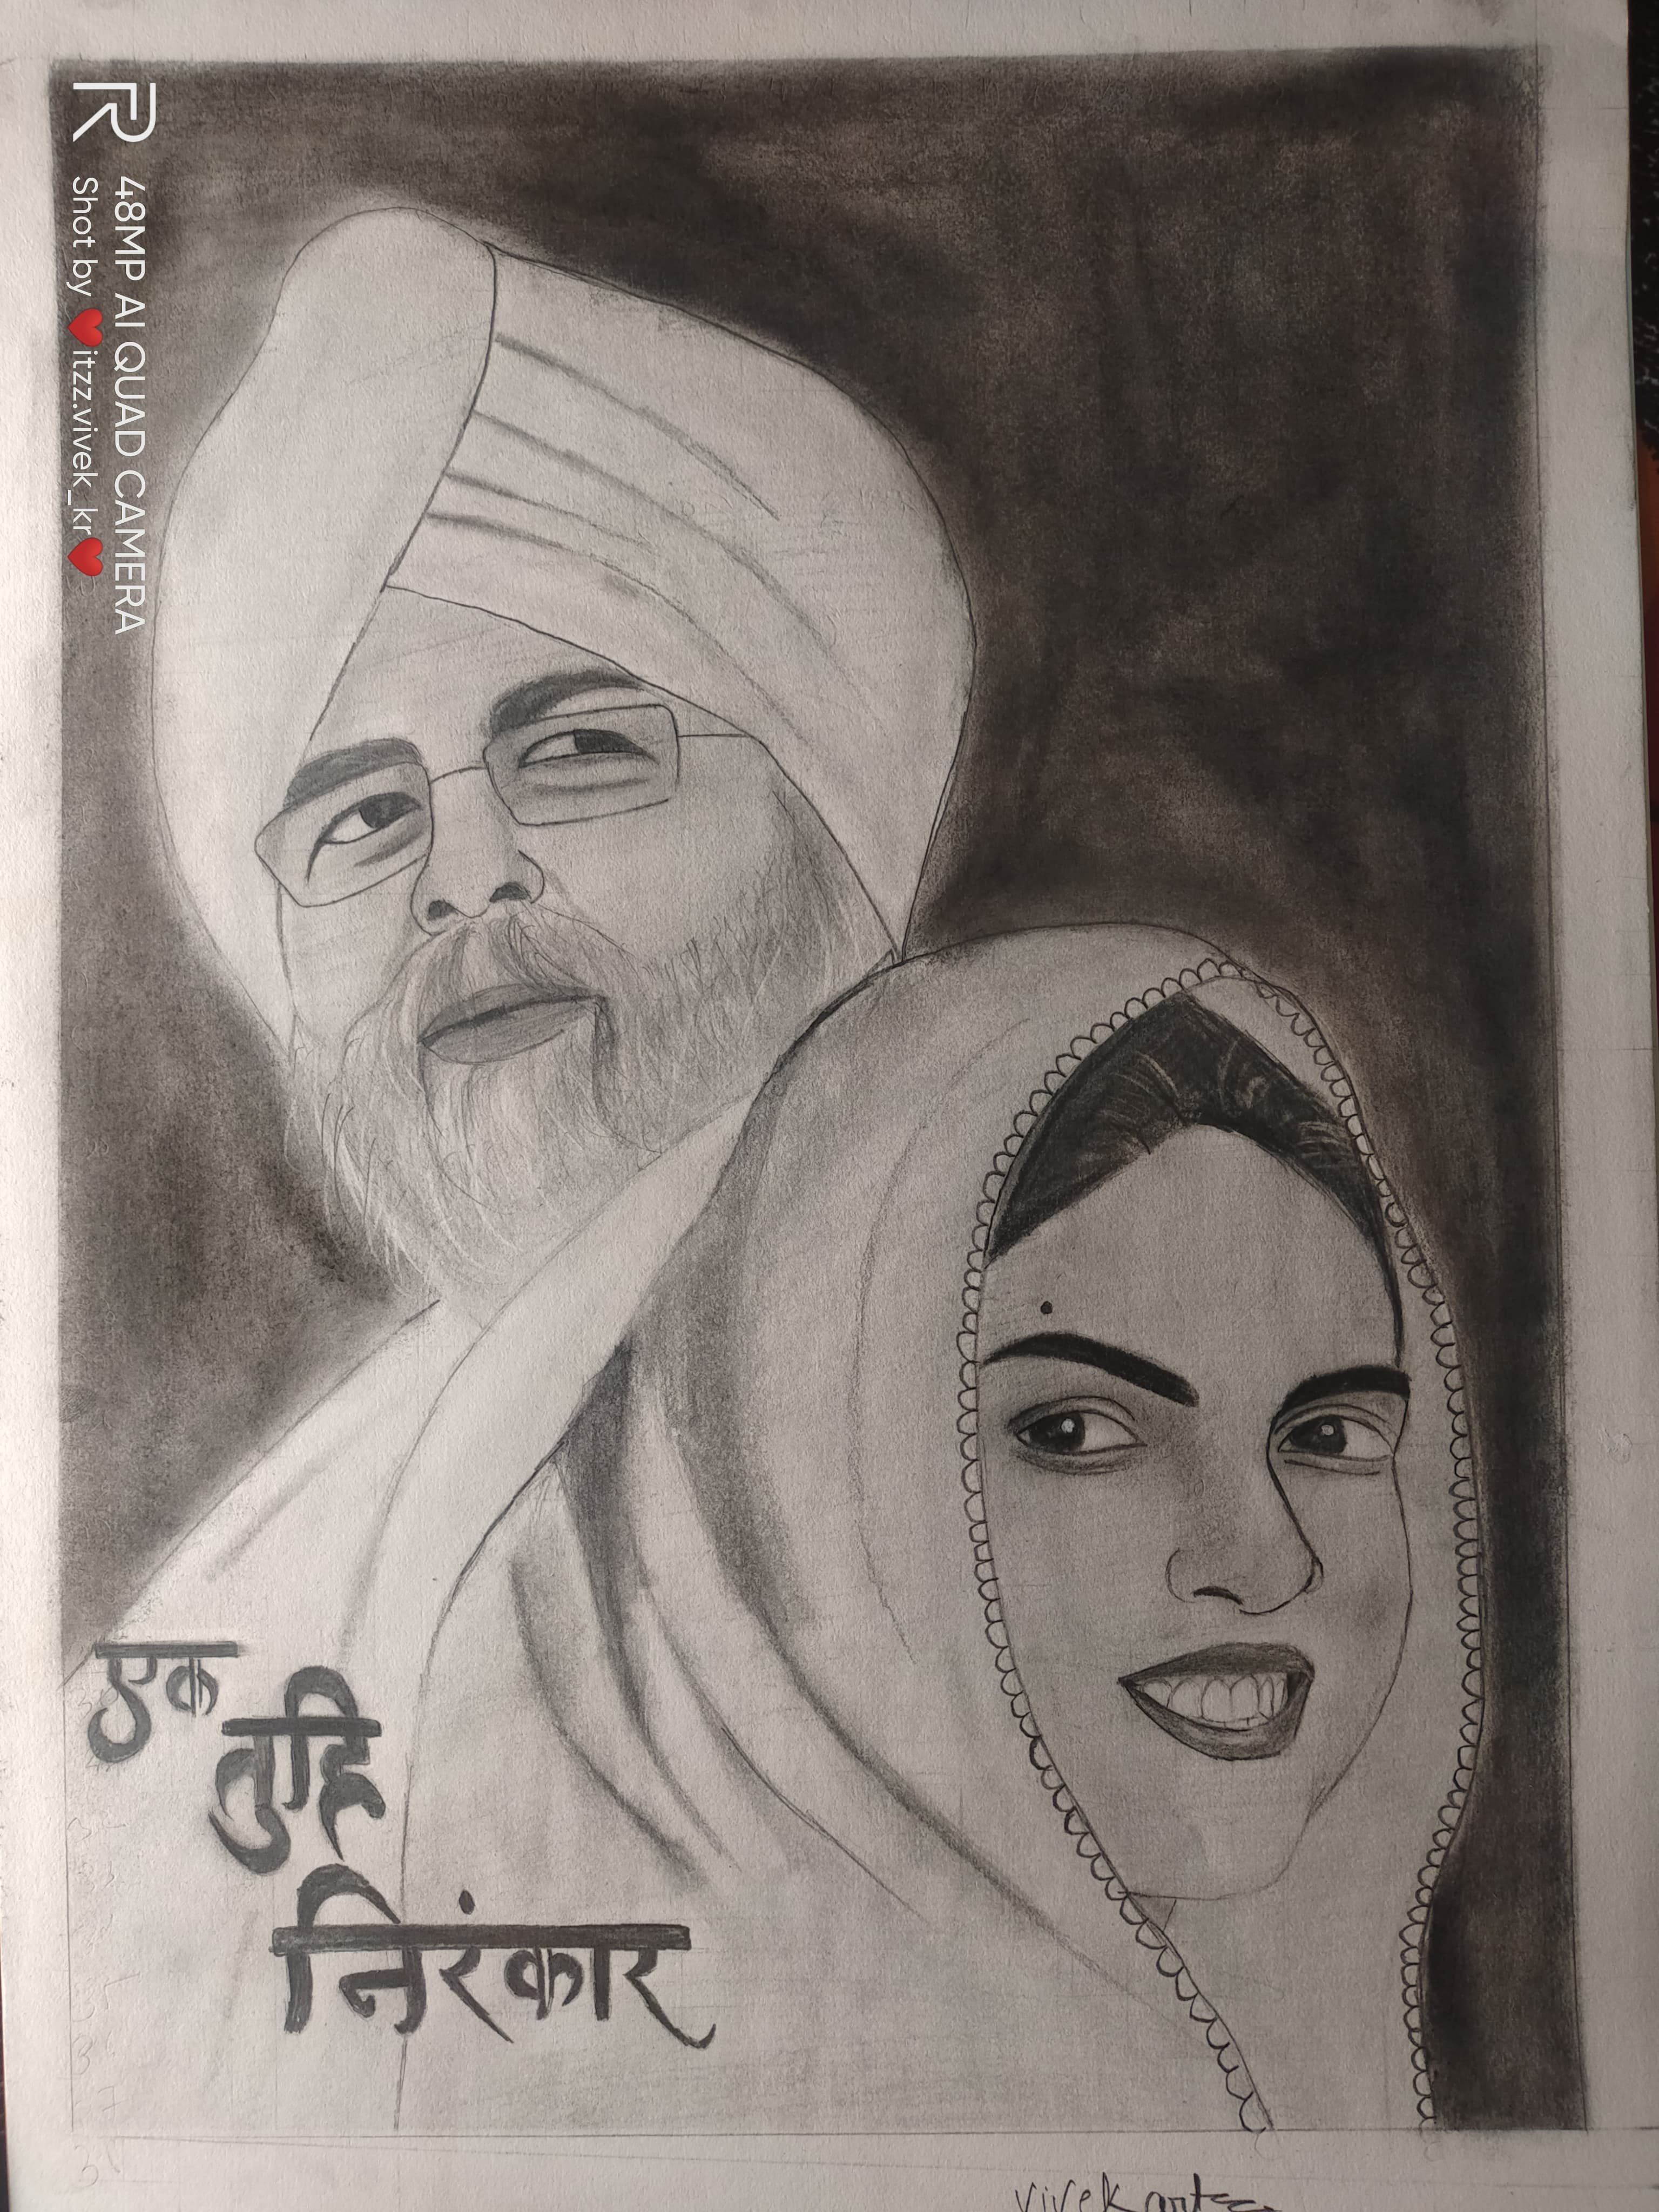 48MP AI QUAD CAMERA
Shot by ❤️itzz.vivek_kr❤️
एक
तुहि
निरंकार
vivek